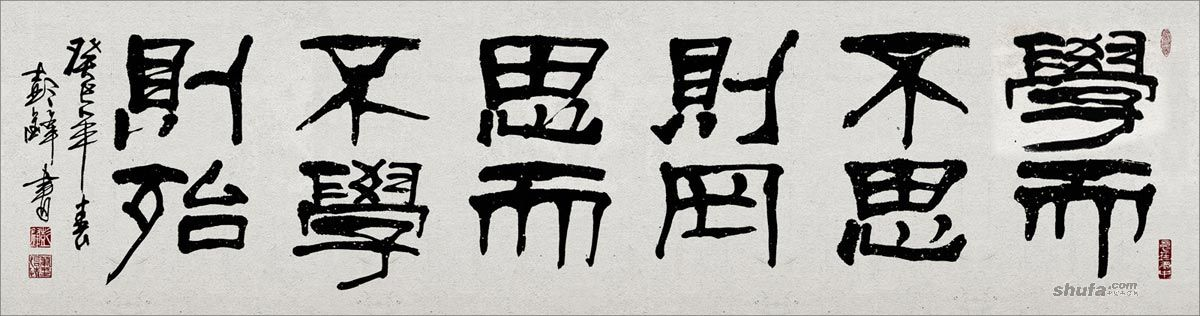 學而
不思
則罔
思而
不學
則殆
癸巳年春
彭鋒書
shufa.com